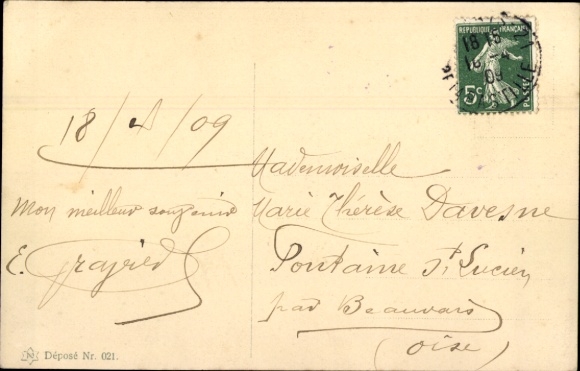 REPUBLIQUE FRANÇAISE
5c
POSTES
18/4/09
Mon meilleur souvenir
E.
Mademoiselle
Marie Thérèse Davesne
Fontaine St. Lucien
par Beauvais
(Oise)
Déposé Nr. 021.